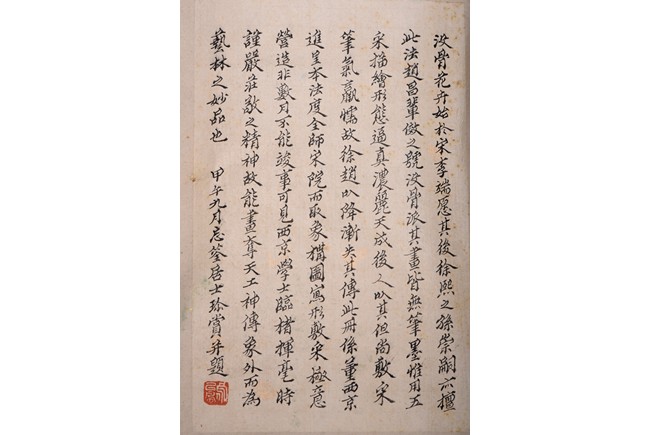 沒骨花卉始於宋李瑞愿其後徐熙之孫崇嗣亦擅
此法趙昌輩倣之號沒骨派其畫皆無筆墨惟用五
采描繪形態逼真濃麗天成後人以其但尚敷采
筆氣羸懦故徐趙以降漸失其傳此冊係董西京
進呈本法度全師宋院而取象構圖寫形敷采極意
營造非數月不能竣事可見西京學士臨楮揮毫時
謹嚴莊敬之精神故能畫奪天工神傳象外而為
藝林之妙品也 甲午九月忘筌居士珍賞并題